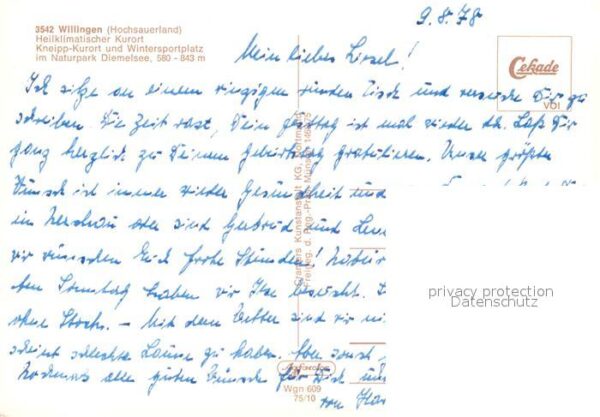 9.8.78
3542 Willingen (Hochsauerland)
Heilklimatischer Kurort
Kneipp-Kurort und Wintersportplatz
im Naturpark Diemelsee, 580 - 843 m
Cekade
VDI
Mein lieber
Ich sitze an einem winzigen runden Tisch und versuche Dir zu
schreiben Die Zeit rast, Dein Festtag ist mal wieder da. Laß Dir
ganz herzlich zu Deinem Geburtstag gratulieren. Unser größter
Wunsch ist immer wieder Gesundheit und
in oder sind Gertrud und
wir wünschen Euch frohe Stunden!
Sonntag haben wir Ilse besucht.
ohne Stock. – Mit dem Wetter sind wir
scheint schlechte Laune zu haben. Aber sonst
Nochmals alle guten Wünsche für Dich und
von
Cramers Kunstanstalt KG, Dortmund
Wgn 609
75/10
privacy protection
Datenschutz